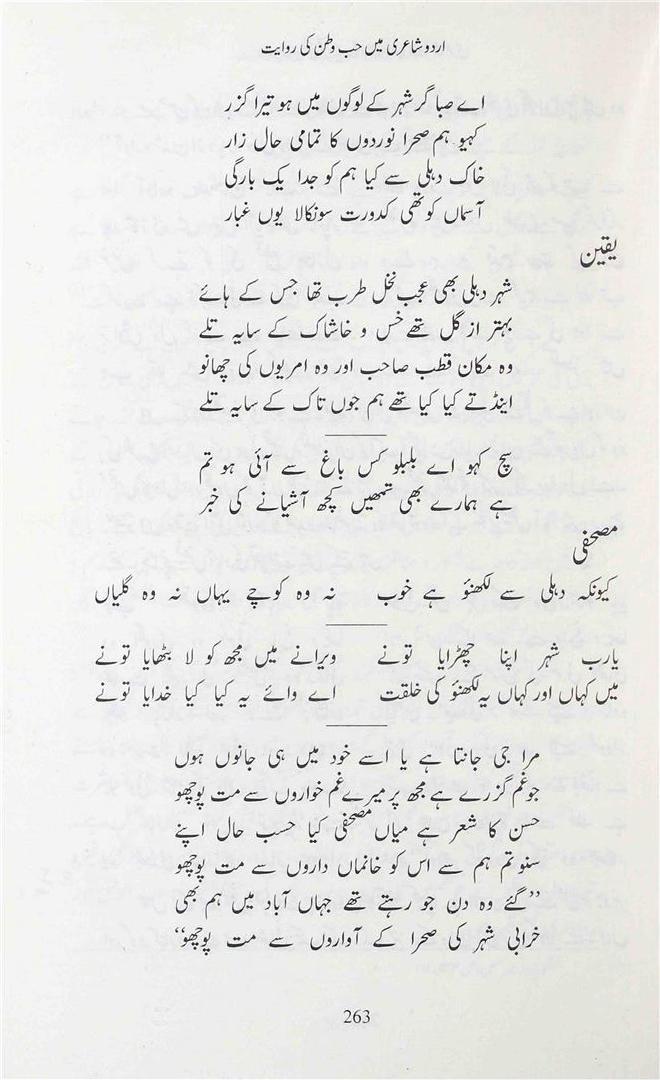 اردو شاعری میں حب وطن کی روایت
اے صبا گر شہر کے لوگوں میں ہو تیرا گزر
کہیو ہم صحرا نوردوں کا تمامی حال زار
خاک دہلی سے کیا ہم کو جدا یک بارگی
آسماں کو تھی کدورت سو نکالا یوں غبار
یقین
شہر دہلی بھی عجب نخل طرب تھا جس کے ہائے
بہتر از گل تھے خس و خاشاک کے سایہ تلے
وہ مکان قطب صاحب اور وہ امریوں کی چھانو
اینڈتے کیا کیا تھے ہم جوں تاک کے سایہ تلے
سچ کہو اے بلبلو کس باغ سے آئی ہو تم
ہے ہمارے بھی تمھیں کچھ آشیانے کی خبر
مصحفی
کیونکہ دہلی سے لکھنؤ ہے خوب نہ وہ کوچے یہاں نہ وہ گلیاں
یارب شہر اپنا چھڑایا تونے ویرانے میں مجھ کو لا بٹھایا تونے
میں کہاں اور کہاں یہ لکھنؤ کی خلقت اے وائے یہ کیا کیا خدایا تونے
مرا جی جانتا ہے یا اسے خود میں ہی جانوں ہوں
جو غم گزرے ہے مجھ پر میرے غم خواروں سے مت پوچھو
حسن کا شعر ہے میاں مصحفی کیا حسب حال اپنے
سنو تم ہم سے اس کو خانماں داروں سے مت پوچھو
”گئے وہ دن جو رہتے تھے جہاں آباد میں ہم بھی
خرابی شہر کی صحرا کے آواروں سے مت پوچھو“
263